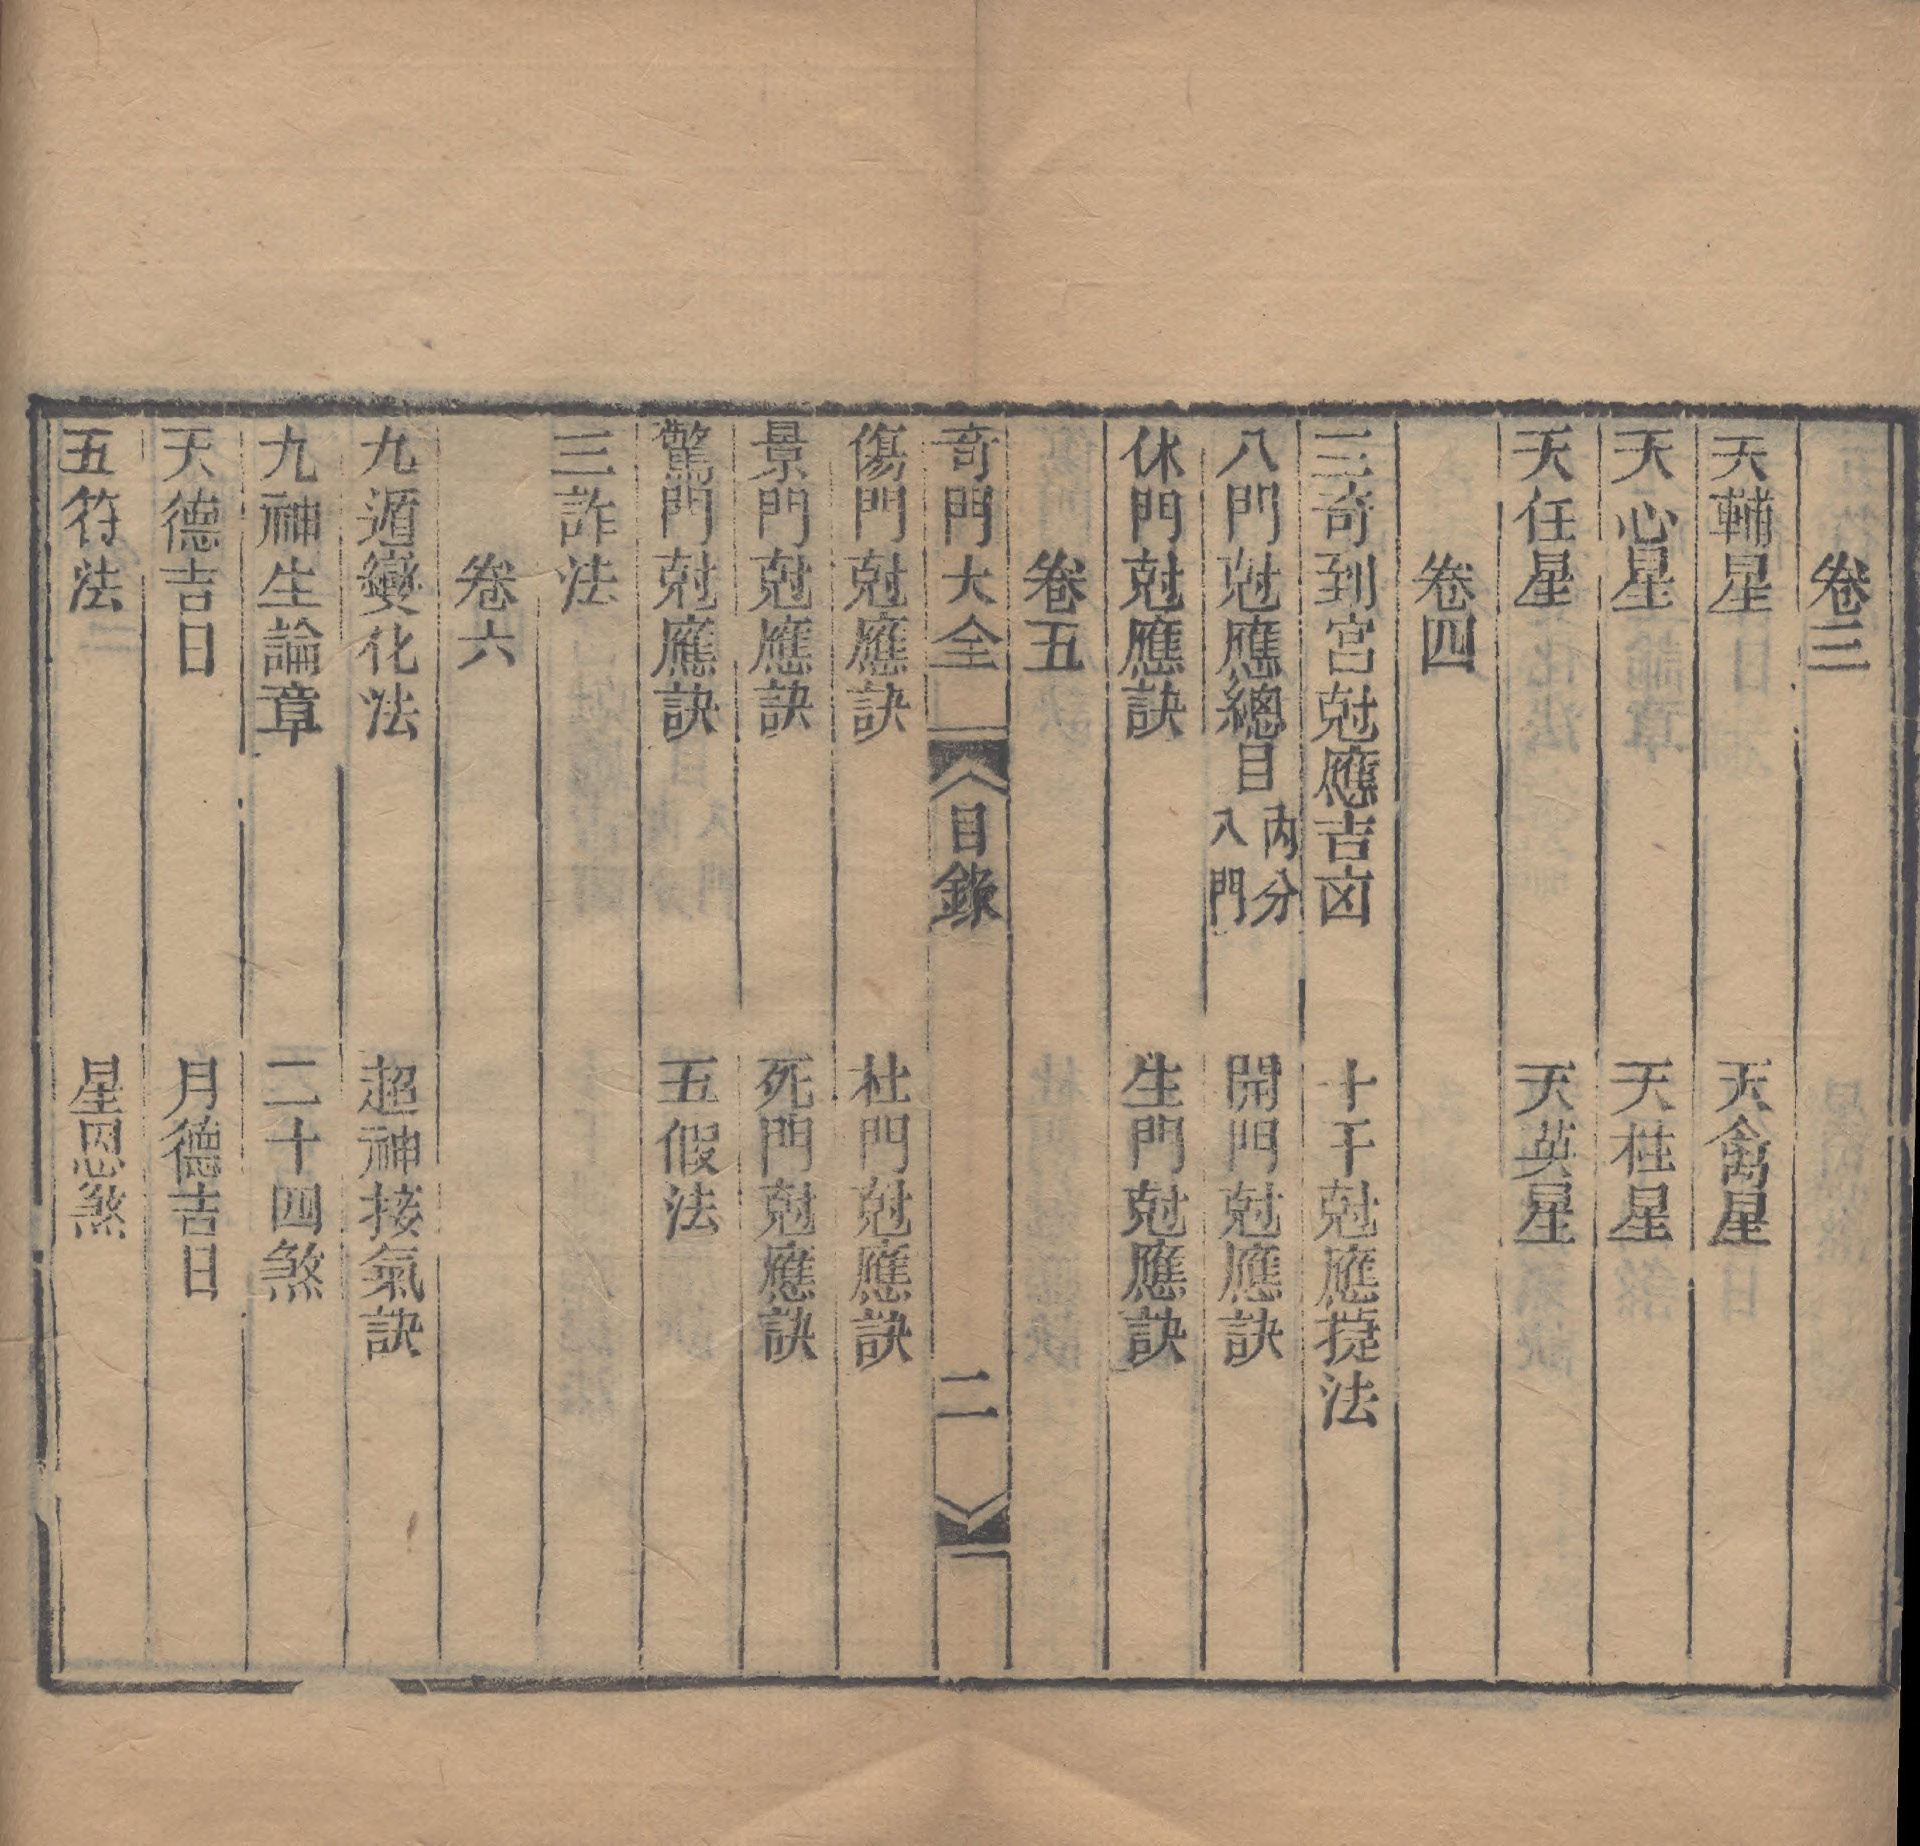 卷三
天輔星　天禽星
天心星　天柱星
天任星　天英星
卷四
三奇到宮尅應吉凶　十干尅應㨗法
八門尅應總目 內分八門　開門尅應訣
休門尅應訣　生門尅應訣
卷五
奇門大全　目錄　二
傷門尅應訣　杜門尅應訣
景門尅應訣　死門尅應訣
驚門尅應訣　五假法
三詐法
卷六
九遁變化法　超神接氣訣
九神生論章　二十四煞
天德吉日　月德吉日
五符法　星恩煞